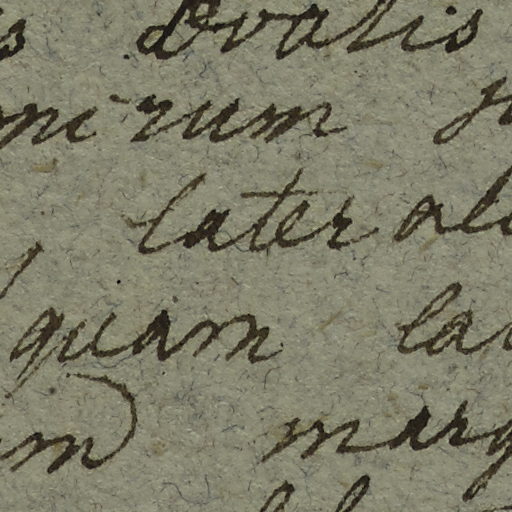 s Ovalis
rum
lateral
quam la
um marg